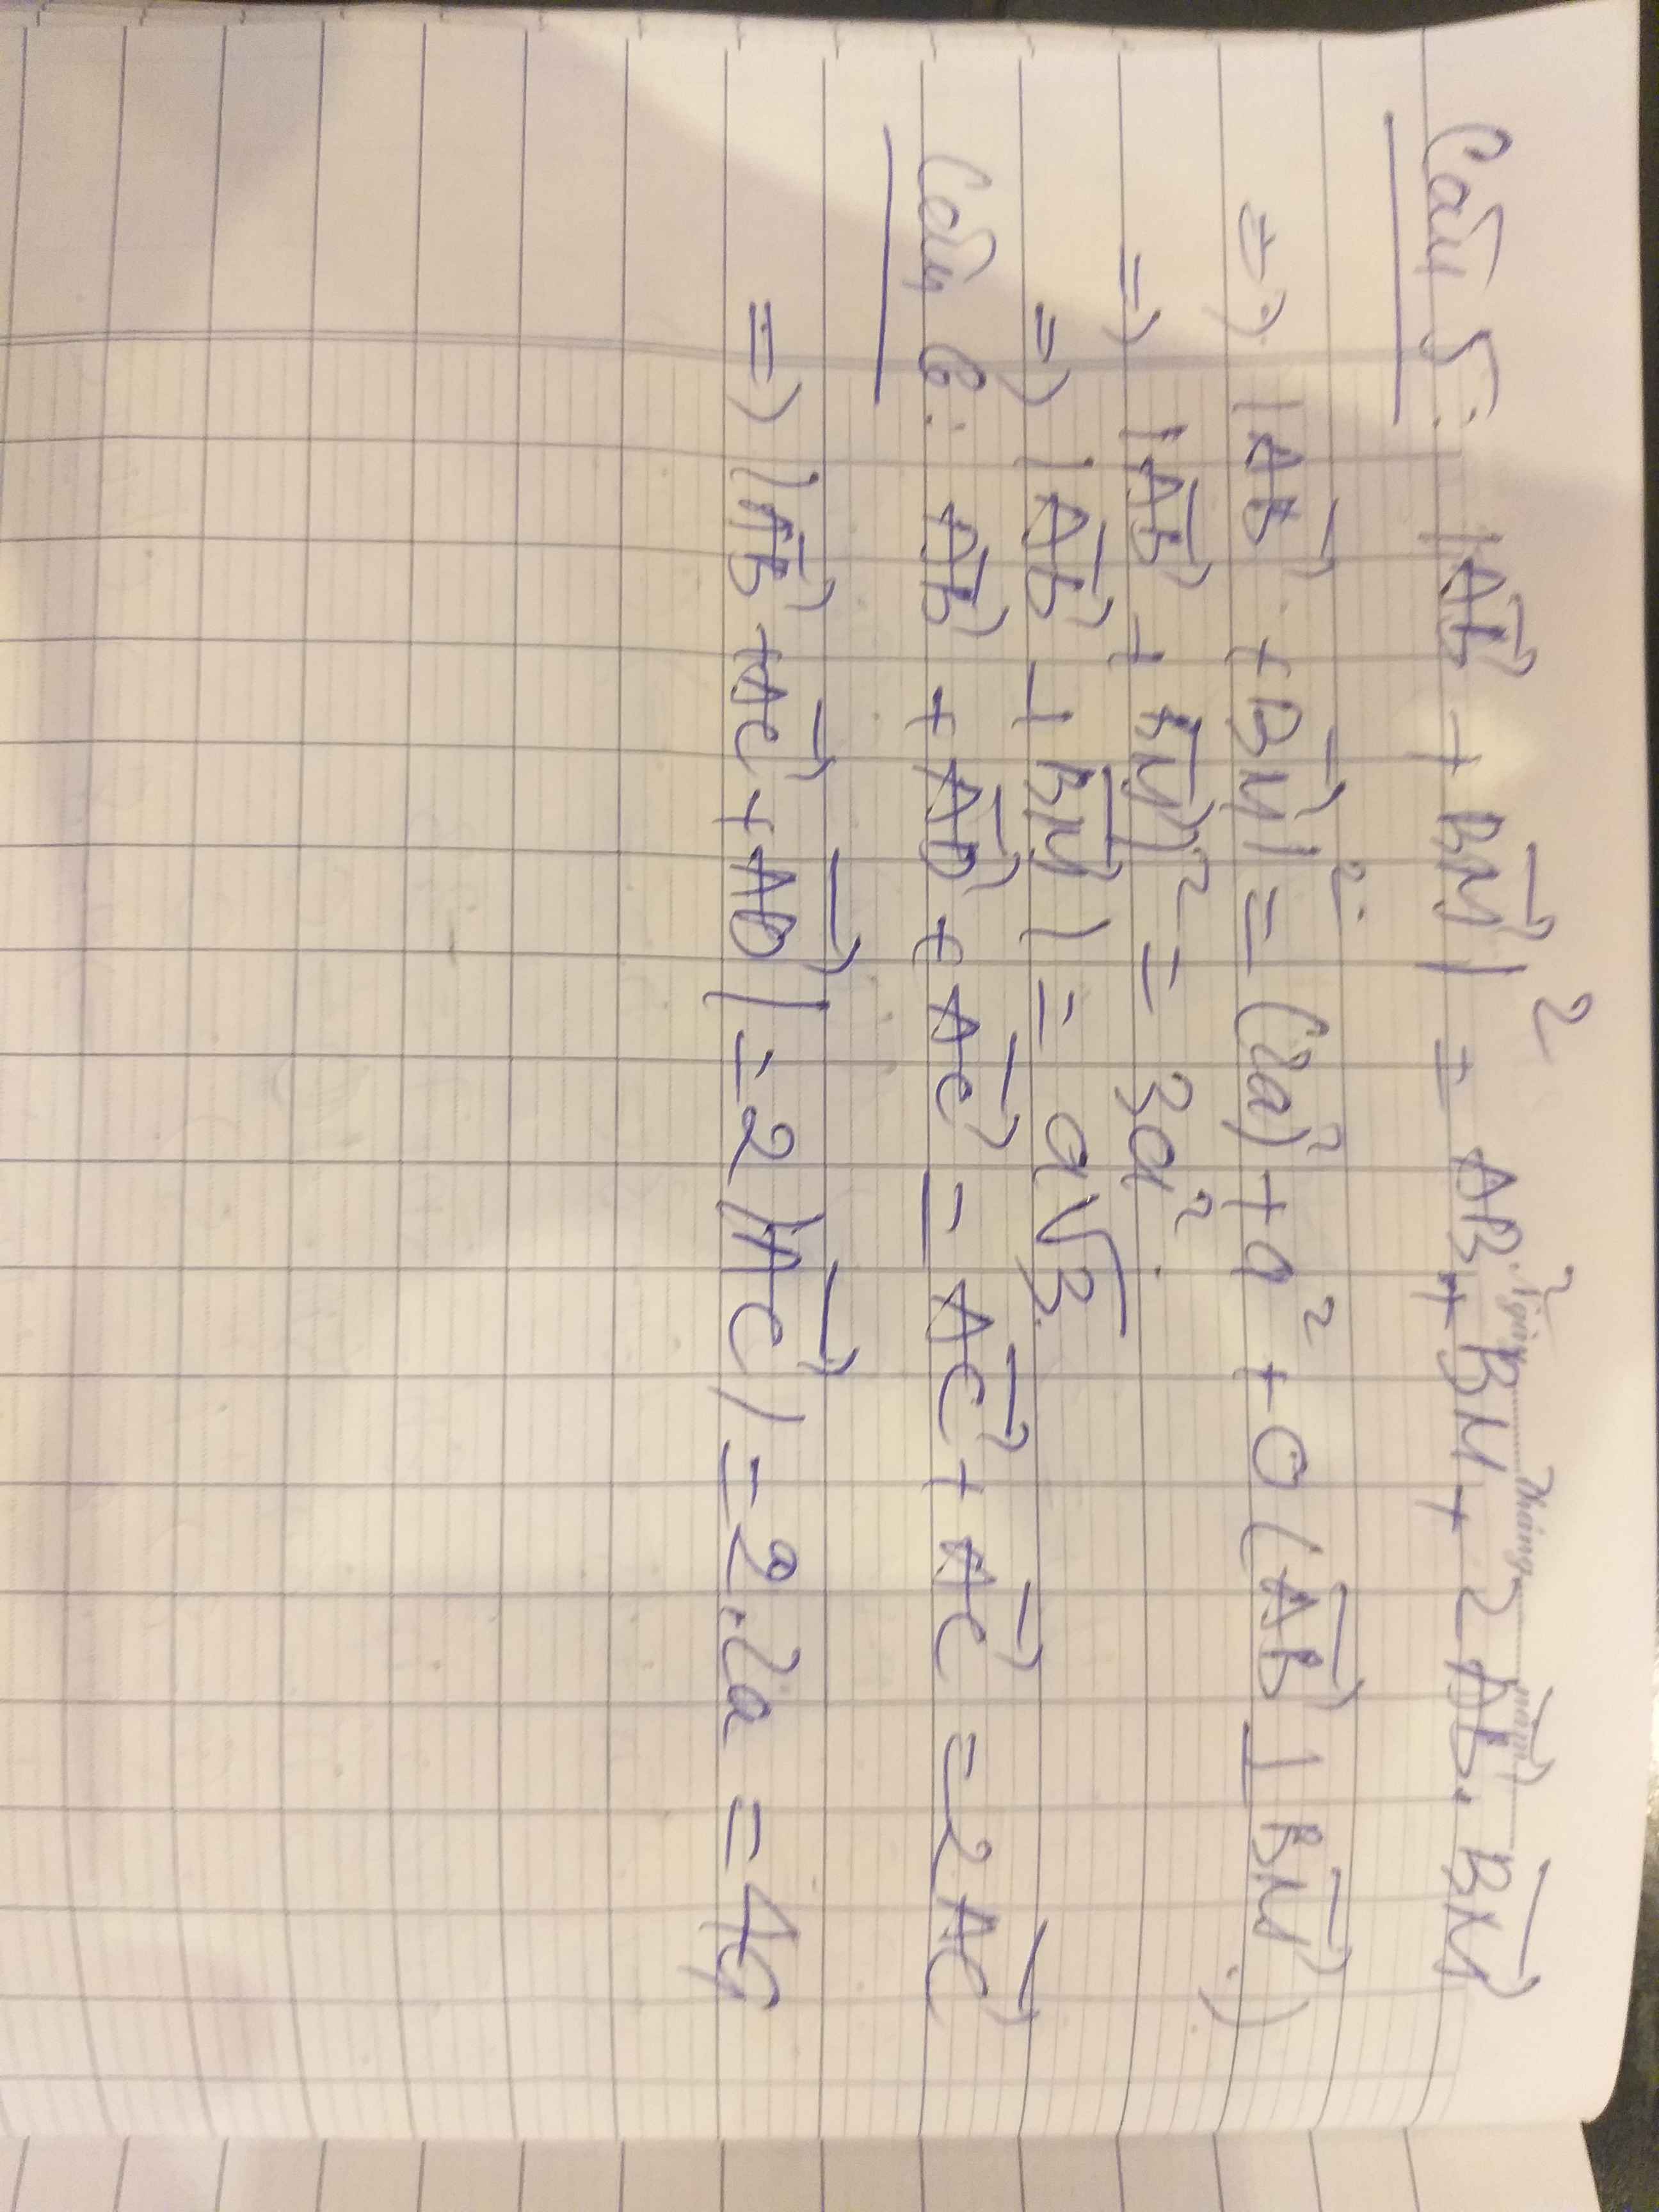 Câu 5: |AB⃗ + BM⃗|² = AB² + BM² + 2AB⃗.BM⃗
Ngày Tháng năm
=> |AB⃗ + BM⃗|² = (2a)² + a² + 0 (AB⃗ ⊥ BM⃗)
=> |AB⃗ + BM⃗)² = 3a².
=> |AB⃗ + BM⃗| = a√3.
Câu 6: AB⃗ + AD⃗ + AC⃗ = AC⃗ + AC⃗ = 2AC⃗
=> |AB⃗ + AC⃗ + AD⃗| = 2|AC⃗| = 2.2a = 4a